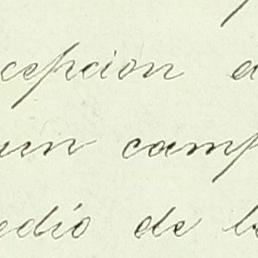 cepcion
un camp
edio de